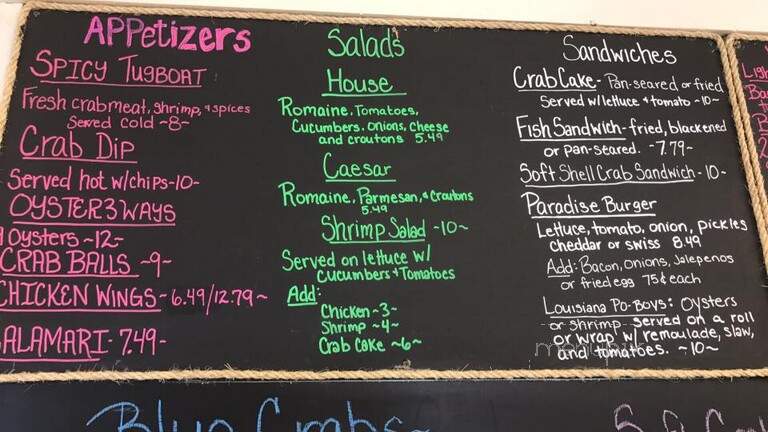 APPetizers
SPICY TUGBOAT
Fresh crabmeat, shrimp, + spices
Served cold ~8~
Crab Dip
Served hot w/chips-10~
OYSTER 3 WAYS
9 Oysters ~12~
CRAB BALLS ~9~
CHICKEN WINGS~6.49/12.79~
ALAMARI- 7.49~
Salads
House
Romaine, Tomatoes,
Cucumbers, Onions, Cheese
and croutons 5.49
Caesar
Romaine, Parmesan, + Croutons
5.49
Shrimp Salad ~10~
Served on lettuce w/
Cucumbers + Tomatoes
Add:
Chicken ~3~
Shrimp ~4~
Crab Cake ~6~
Sandwiches
Crab Cake- Pan-seared or fried
Served w/lettuce + tomato ~10~
Fish Sandwich- fried, blackened
or pan-seared. ~7.79~
Soft Shell Crab Sandwich- 10~
Paradise Burger
Lettuce, tomato, onion, pickles
cheddar or swiss 8.49
Add: Bacon, Onions, Jalepenos
or fried egg 75¢ each
Louisiana Po-Boys: Oysters
or shrimp served on a roll
or wrap w/ remoulade, slaw,
and tomatoes. ~10~
Ligh
Ba
Blue Crabs~